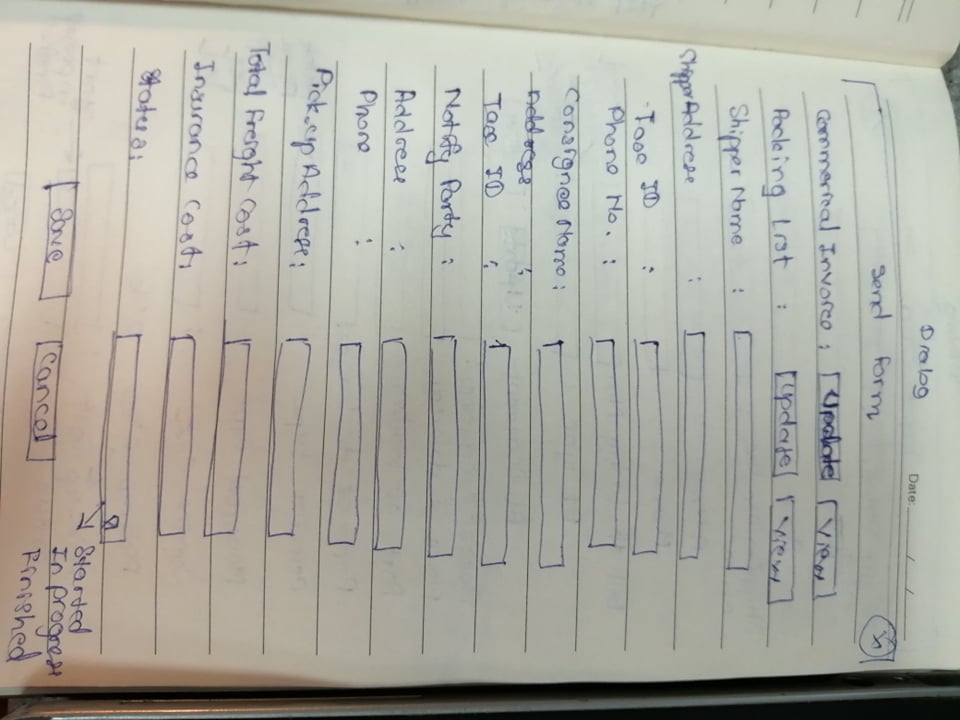 Dialog
Date: / /
Send Form X
Commerical Invoice : Update View
Packing List : Update View
Shipper Name :
Shipper Address :
Taxe ID :
Phone No. :
Consignee Name :
Address :
Taxe ID :
Notify Party :
Address :
Phone :
Pick-up Address :
Total Freight Cost :
Insurance Cost :
Status :
Started
In progress
Finished
Save Cancel